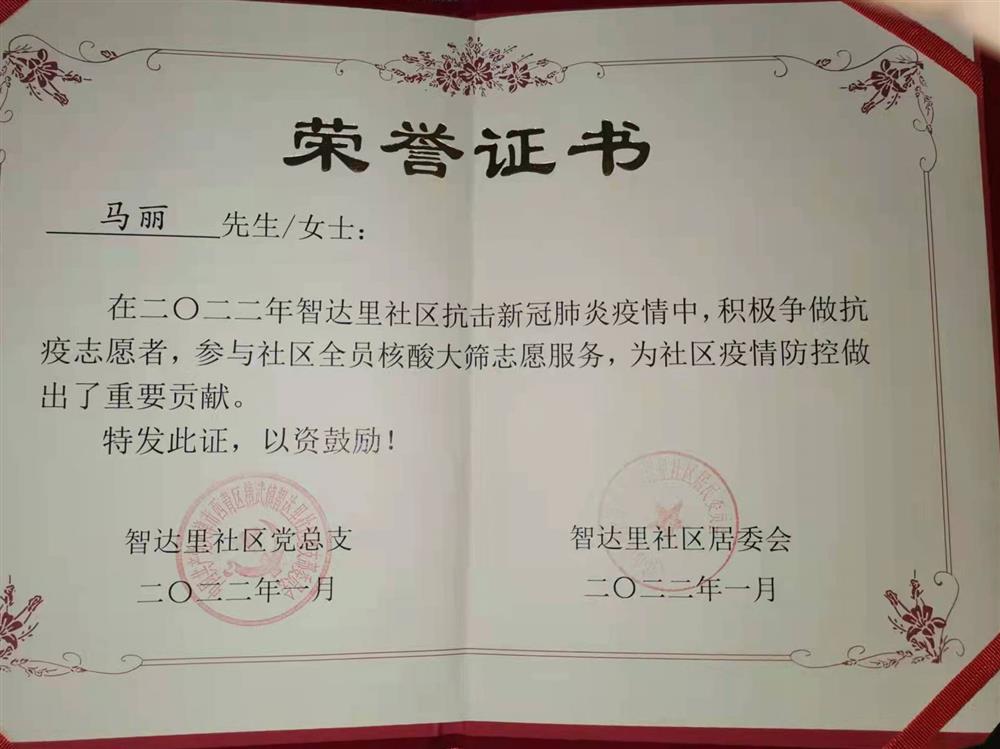 荣誉证书
马丽 先生/女士：
在二〇二二年智达里社区抗击新冠肺炎疫情中，积极争做抗
疫志愿者，参与社区全员核酸大筛志愿服务，为社区疫情防控做
出了重要贡献。
特发此证，以资鼓励！
智达里社区党总支
二〇二二年一月
智达里社区居委会
二〇二二年一月